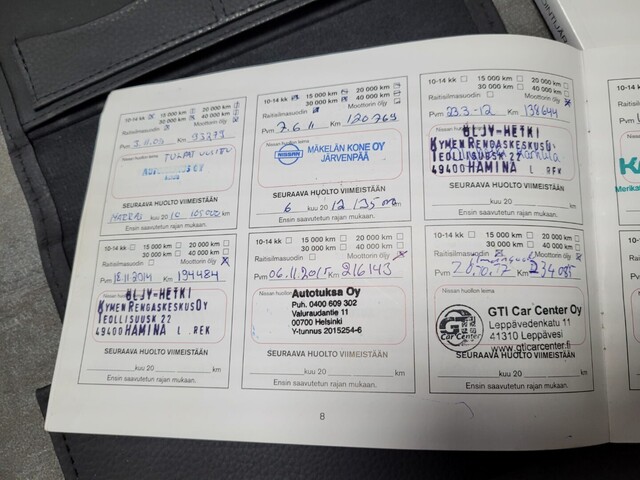 10-14 kk 15 000 km 20 000 km
30 000 km 40 000 km
Raitisilmasuodin Moottorin öljy
Pvm Km 93279
Nissan huollon leima
SEURAAVA HUOLTO VIIMEISTÄÄN
kuu 20 10 105000 km
Ensin saavutetun rajan mukaan.
10-14 kk 15 000 km 20 000 km
30 000 km 40 000 km
Raitisilmasuodin Moottorin öljy
Pvm 7.6.11 Km 120769
Nissan huollon leima
NISSAN MÄKELÄN KONE OY
JÄRVENPÄÄ
SEURAAVA HUOLTO VIIMEISTÄÄN
6 kuu 20 12 135000 km
Ensin saavutetun rajan mukaan.
10-14 kk 15 000 km 20 000 km
30 000 km 40 000 km
Raitisilmasuodin Moottorin öljy
Pvm 23.3.-12 Km 138644
Nissan huollon leima
ÖLJY-HETKI
KYMEN RENGASKESKUS OY
TEOLLISUUSK 22
49400 HAMINA L. REK
SEURAAVA HUOLTO VIIMEISTÄÄN
kuu 20 km
Ensin saavutetun rajan mukaan.
10-14 kk 15 000 km 20 000 km
30 000 km 40 000 km
Raitisilmasuodin Moottorin öljy
Pvm 18.11.2014 Km 194484
Nissan huollon leima
ÖLJY-HETKI
KYMEN RENGASKESKUS OY
TEOLLISUUSK 22
49400 HAMINA L. REK
SEURAAVA HUOLTO VIIMEISTÄÄN
kuu 20 km
Ensin saavutetun rajan mukaan.
10-14 kk 15 000 km 20 000 km
30 000 km 40 000 km
Raitisilmasuodin Moottorin öljy
Pvm 06.11.2015 Km 216143
Nissan huollon leima
Autotuksa Oy
Puh. 0400 609 302
Valuraudantie 11
00700 Helsinki
Y-tunnus 2015254-6
SEURAAVA HUOLTO VIIMEISTÄÄN
kuu 20 km
Ensin saavutetun rajan mukaan.
10-14 kk 15 000 km 20 000 km
30 000 km 40 000 km
Raitisilmasuodin Moottorin öljy
Pvm Km 234085
Nissan huollon leima
GTI Car Center
GTI Car Center Oy
Leppävedenkatu 11
41310 Leppävesi
www.gticarcenter.fi
SEURAAVA HUOLTO VIIMEISTÄÄN
kuu 20 km
Ensin saavutetun rajan mukaan.
8